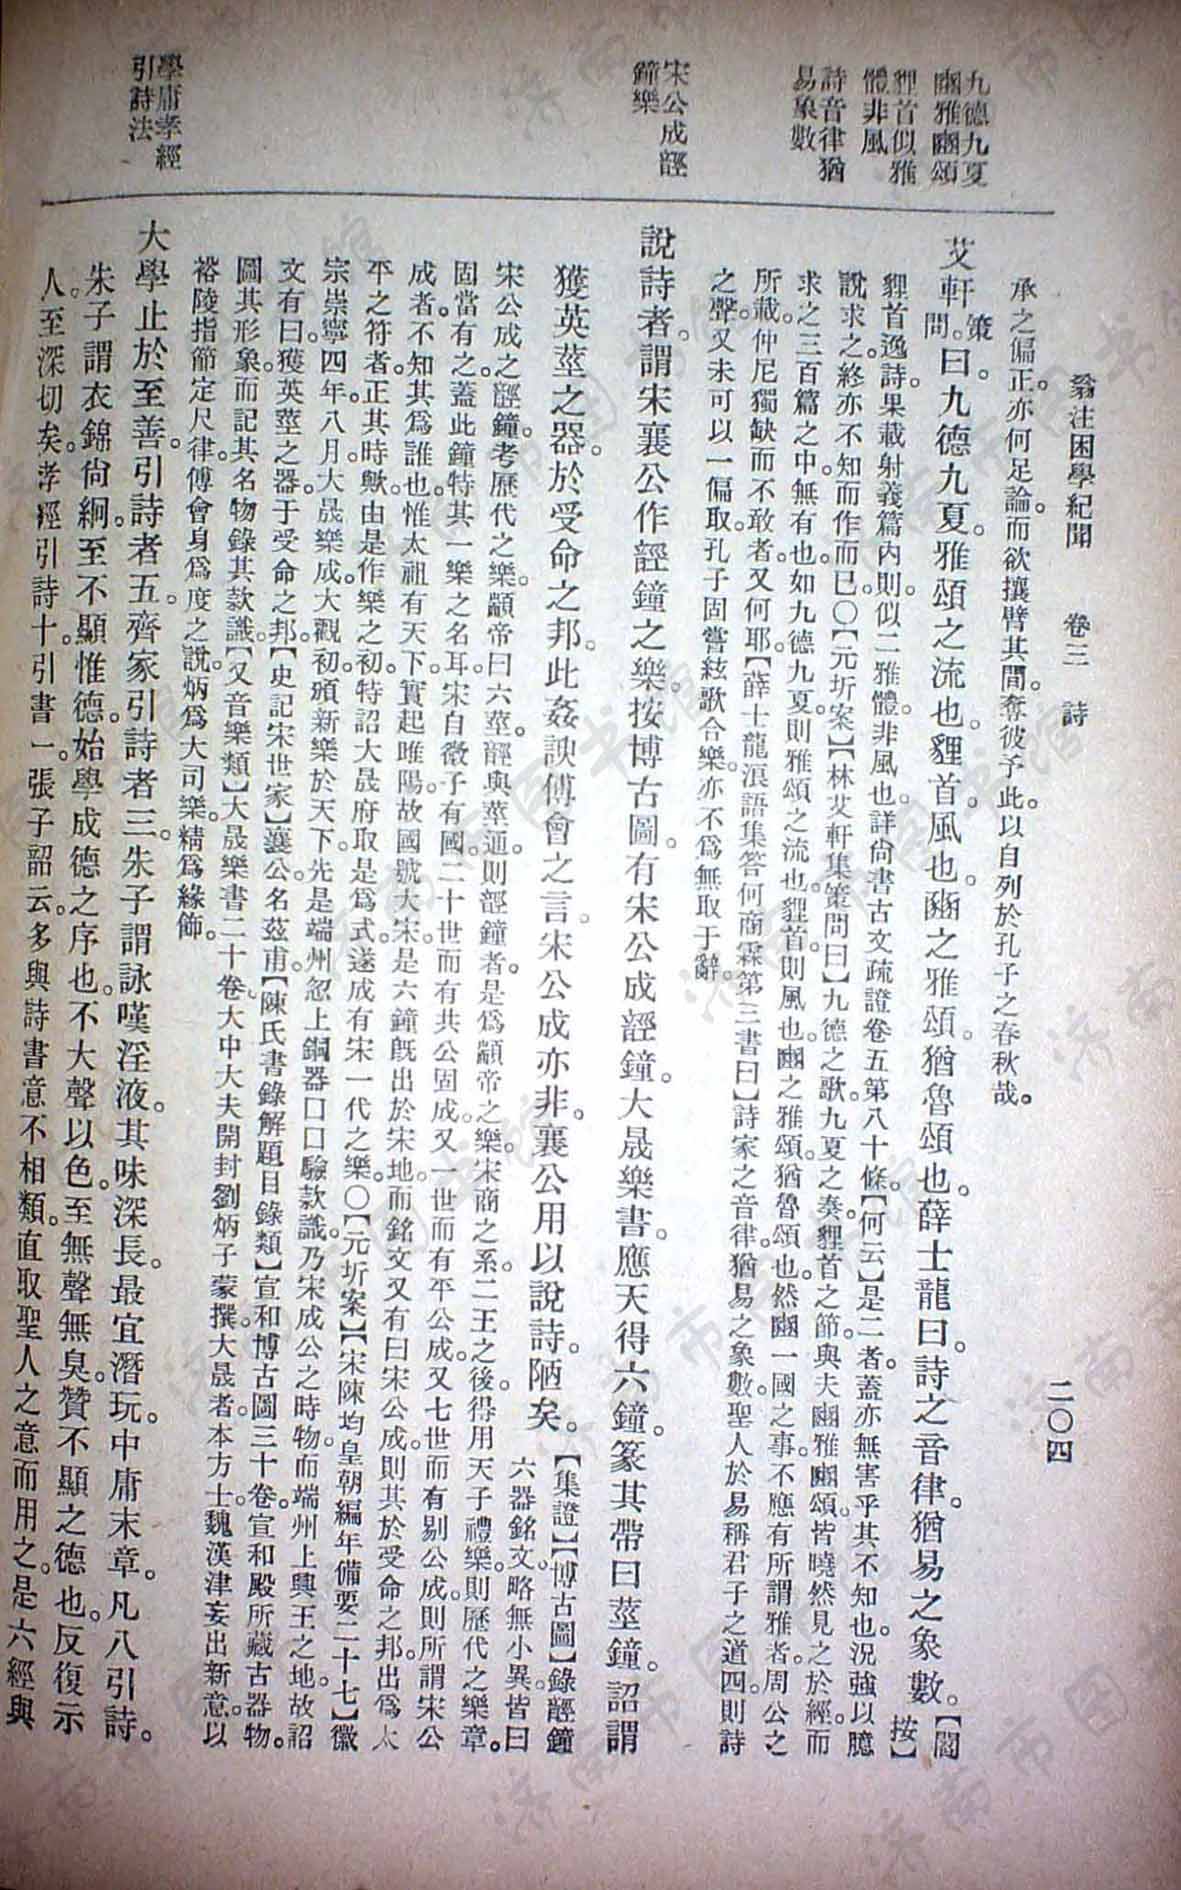 翁注困學紀聞　卷三　詩　二〇四
九德九夏
豳雅豳頌
貍首似雅
體非風
詩音律猶
易象數
宋公成䪫
鐘樂
學庸孝經
引詩法
承之偏正。亦何足論。而欲攘臂其間。奪彼予此。以自列於孔子之春秋哉。
艾軒策問。曰九德九夏。雅頌之流也。貍首。風也。豳之雅頌。猶魯頌也。薛士龍曰。詩之音律。猶易之象數。【閻按】
貍首逸詩。果載射義篇內。則似二雅體。非風也。詳尚書古文疏證卷五第八十條。【何云】是二者。蓋亦無害乎其不知也。況強以臆
說求之。終亦不知而作而已〇【元圻案】【林艾軒集策問曰】九德之歌。九夏之奏。貍首之節。與夫豳雅豳頌。皆曉然見之於經。而
求之三百篇之中。無有也。如九德九夏。則雅頌之流也。貍首。則風也。豳之雅頌。猶魯頌也。然豳一國之事。不應有所謂雅者。周公之
所載。仲尼獨缺而不敢者。又何耶。【薛士龍浪語集答何商霖第三書曰】詩家之音律。猶易之象數。聖人於易稱君子之道四。則詩
之聲。又未可以一偏取。孔子固嘗絃歌合樂。亦不為無取于辭。
說詩者。謂宋襄公作䪫鐘之樂。按博古圖。有宋公成䪫鐘。大晟樂書。應天得六鐘。篆其帶曰莖鐘。詔謂
獲英莖之器。於受命之邦。此姦諛傅會之言。宋公成亦非。襄公用以說詩。陋矣。【集證】【博古圖】錄䪫鐘
六器銘文。略無小異。皆曰
宋公成之䪫鐘。考歷代之樂。顓帝曰六莖。䪫與莖通。則䪫鐘者。是為顓帝之樂。宋商之系。二王之後。得用天子禮樂。則歷代之樂章。
固當有之。蓋此鐘特其一樂之名耳。宋自微子有國。二十世而有共公固成。又一世而有平公成。又七世而有剔公成。則所謂宋公
成者。不知其為誰也。惟太祖有天下。實起睢陽。故國號大宋。是六鐘既出於宋地。而銘文又有曰宋公成。則其於受命之邦。出為太
平之符者。正其時歟。由是作樂之初。特詔大晟府取是為式。遂成有宋一代之樂。〇【元圻案】【宋陳均皇朝編年備要二十七】徽
宗崇寧四年。八月。大晟樂成。大觀初。頒新樂於天下。先是端州忽上銅器口口驗款識。乃宋成公之時物。而端州上興王之地。故詔
文有曰。獲英莖之器。于受命之邦。【史記宋世家】襄公。名茲甫。【陳氏書錄解題目錄類】宣和博古圖三十卷。宣和殿所藏古器物。
圖其形象。而記其名物。錄其款識。【又音樂類】大晟樂書二十卷。大中大夫開封劉炳子蒙撰。大晟者。本方士魏漢津妄出新意。以
裕陵指節定尺律。傅會身為度之說。炳為大司樂。精為緣飾。
大學止於至善。引詩者五。齊家引詩者三。朱子謂詠嘆淫液。其味深長。最宜潛玩。中庸末章。凡八引詩。
朱子謂衣錦尚絅。至不顯惟德。始學成德之序也。不大聲以色。至無聲無臭。贊不顯之德也。反復示
人。至深切矣。孝經引詩十。引書一。張子韶云。多與詩書意不相類。直取聖人之意而用之。是六經與